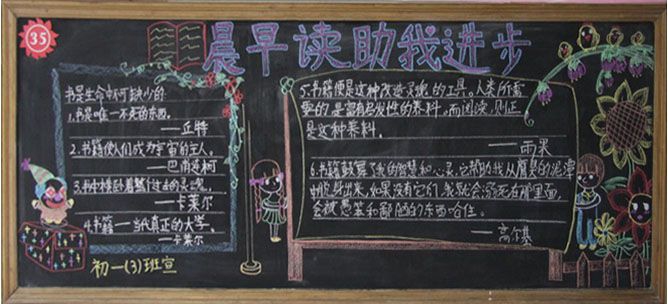 35
晨早读助我进步
书是生命中不可缺少的
1.书是唯一不死的东西。
——丘特
2.书籍使人们成为宇宙的主人。
——巴甫连柯
3.书中横卧着整个过去的灵魂。
——卡莱尔
4.书籍——当代真正的大学。
——卡莱尔
初一(3)班宣
5.书籍便是这种改造灵魂的工具。人类所需
要的,是富有启发性的养料。而阅读,则正
是这种养料。
——雨果
6.书籍鼓舞了我的智慧和心灵,它帮助我从腐臭的泥潭
中脱身出来,如果没有它们,我就会溺死在那里面,
会被愚笨和鄙陋的东西呛住。
——高尔基